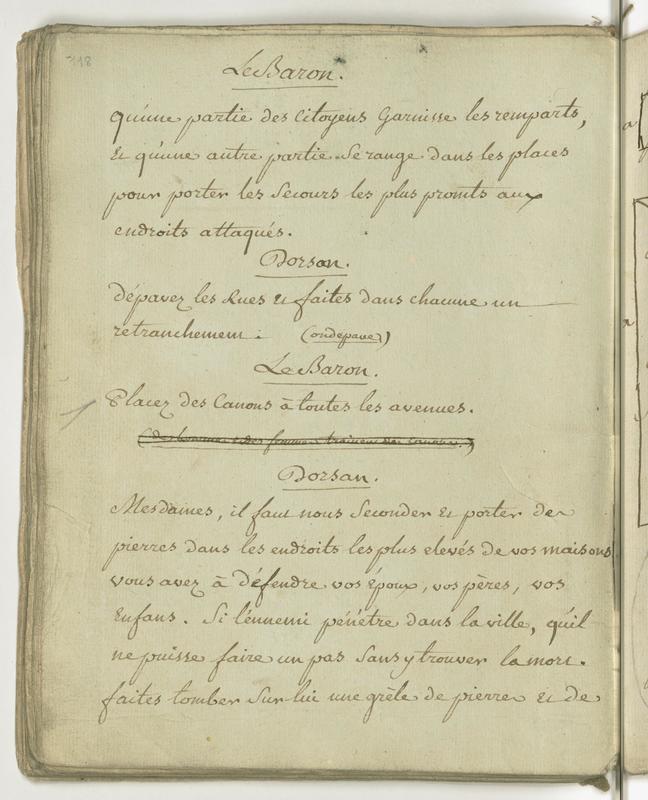 318
Le Baron.
qu'une partie des Citoyens Garnisse les remparts,
Et qu'une autre partie Se range dans les places
pour porter les Secours les plus promts aux
endroits attaqués.
Dorsan.
dépavez les Rues et faites dans chacune un
retranchement. (on depave)
Le Baron.
Placez des Canons à toutes les avenues.
(des hommes et des femmes trainent des Canons.)
Dorsan.
Mesdames, il faut nous Seconder Et porter des
pierres dans les endroits les plus elevés de vos maisons
vous avez à défendre vos Époux, vos pères, vos
Enfans. Si l'ennemi pénétre dans la ville, qu'il
ne puisse faire un pas Sans y trouver la mort.
faites tomber Sur lui une grèle de pierres Et de